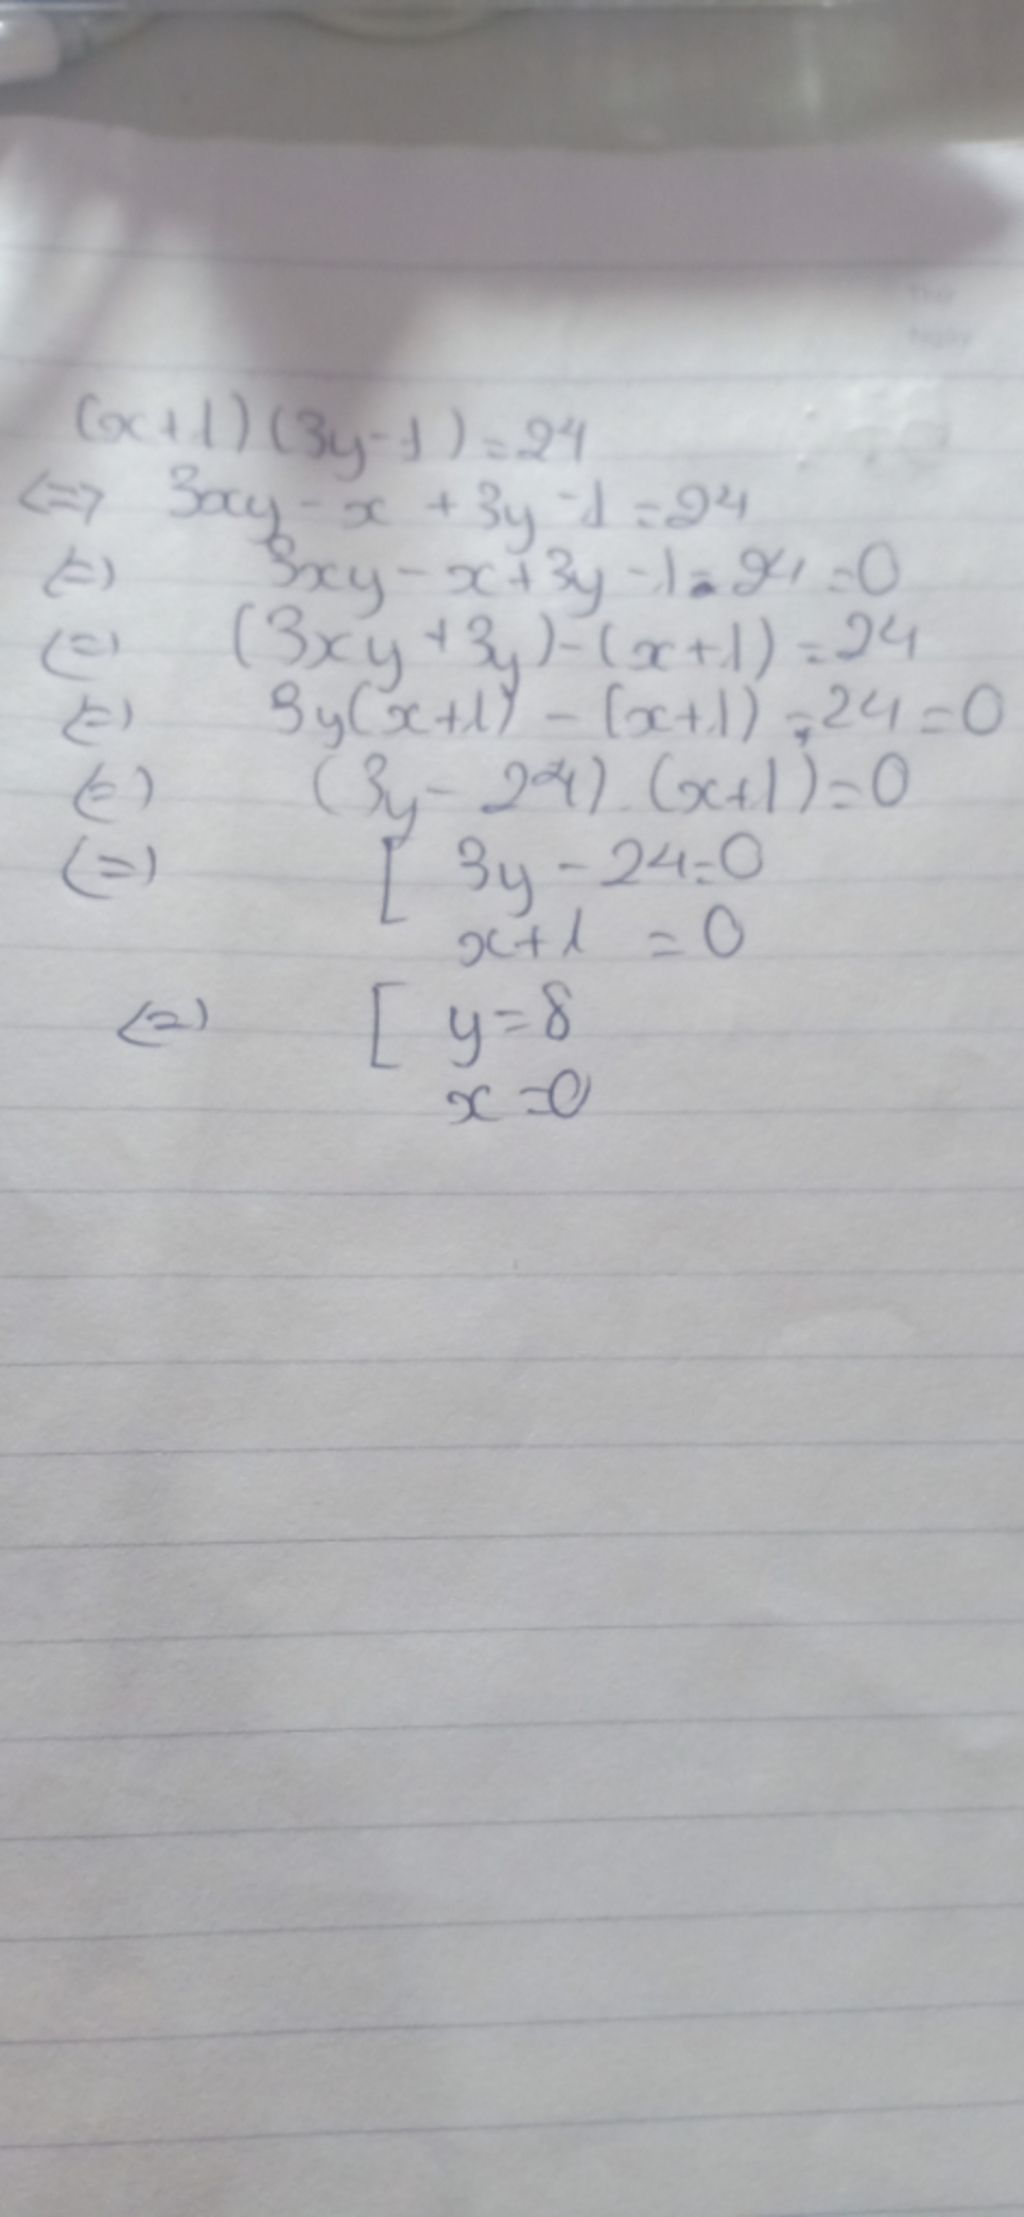 (x+1)(3y-1)=24
<=> 3xy-x+3y-1=24
<=> 3xy-x+3y-1-24=0
<=> (3xy+3y)-(x+1)=24
<=> 3y(x+1)-(x+1)-24=0
<=> (3y-24).(x+1)=0
<=> [ 3y-24=0
x+1=0
<=> [ y=8
x=0